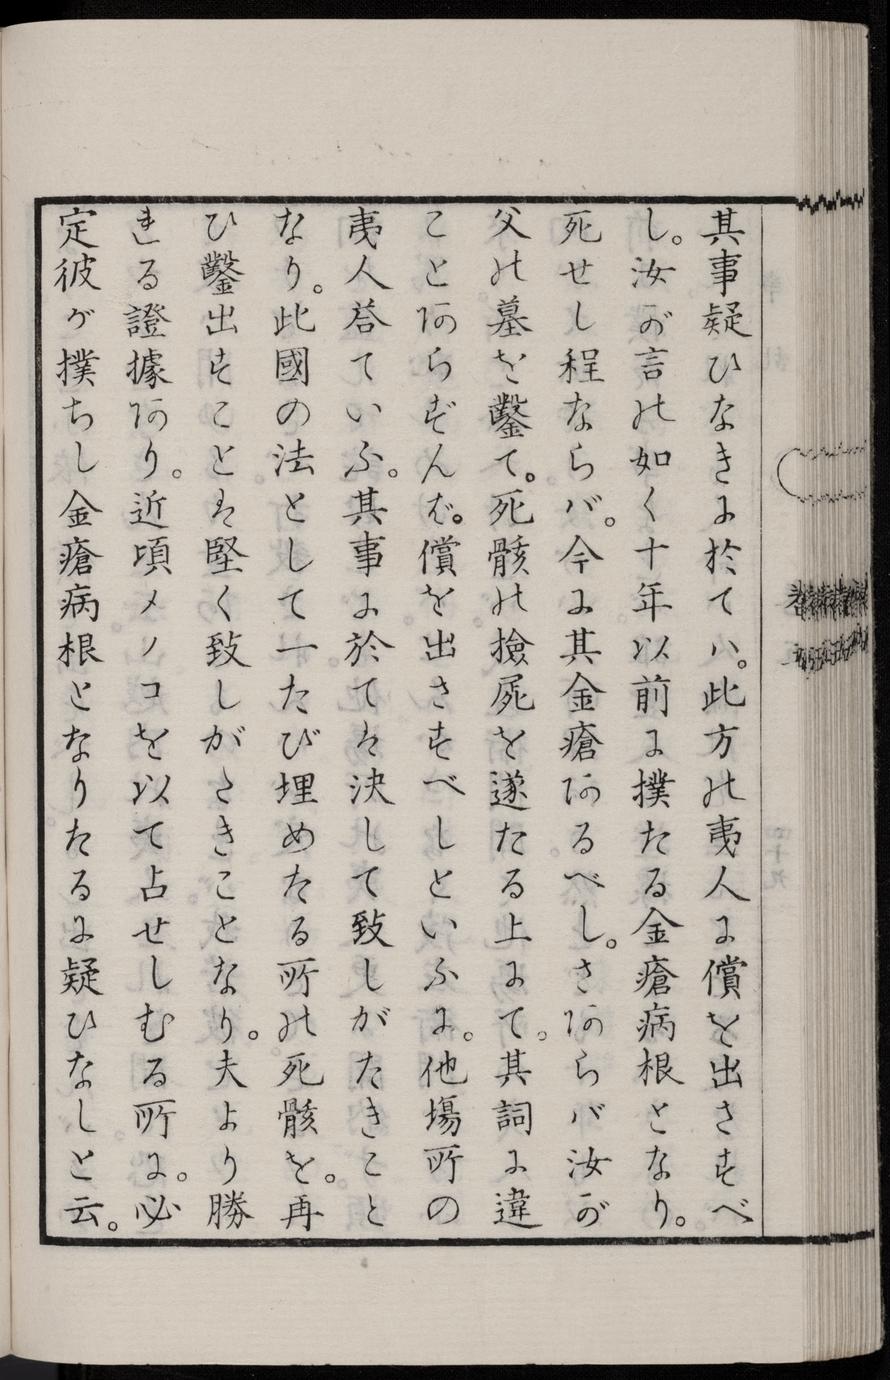 其事疑ひなきに於てハ。此方の夷人に償を出さすべ
し。汝が言の如く十年以前に撲たる金瘡病根となり。
死せし程ならバ。今に其金瘡あるべし。さあらバ汝が
父の墓を鑿て。死骸の撿屍を遂たる上にて。其詞に違
ことあらずんば。償を出さすべしといふに。他塲所の
夷人荅ていふ。其事に於てハ決して致しがたきこと
なり。此國の法として一たび埋めたる所の死骸を。再
ひ鑿出すことハ堅く致しがたきことなり。夫より勝
れる證據あり。近頃メノコを以て占せしむる所に。必
定彼が撲ちし金瘡病根となりたるに疑ひなしと云。